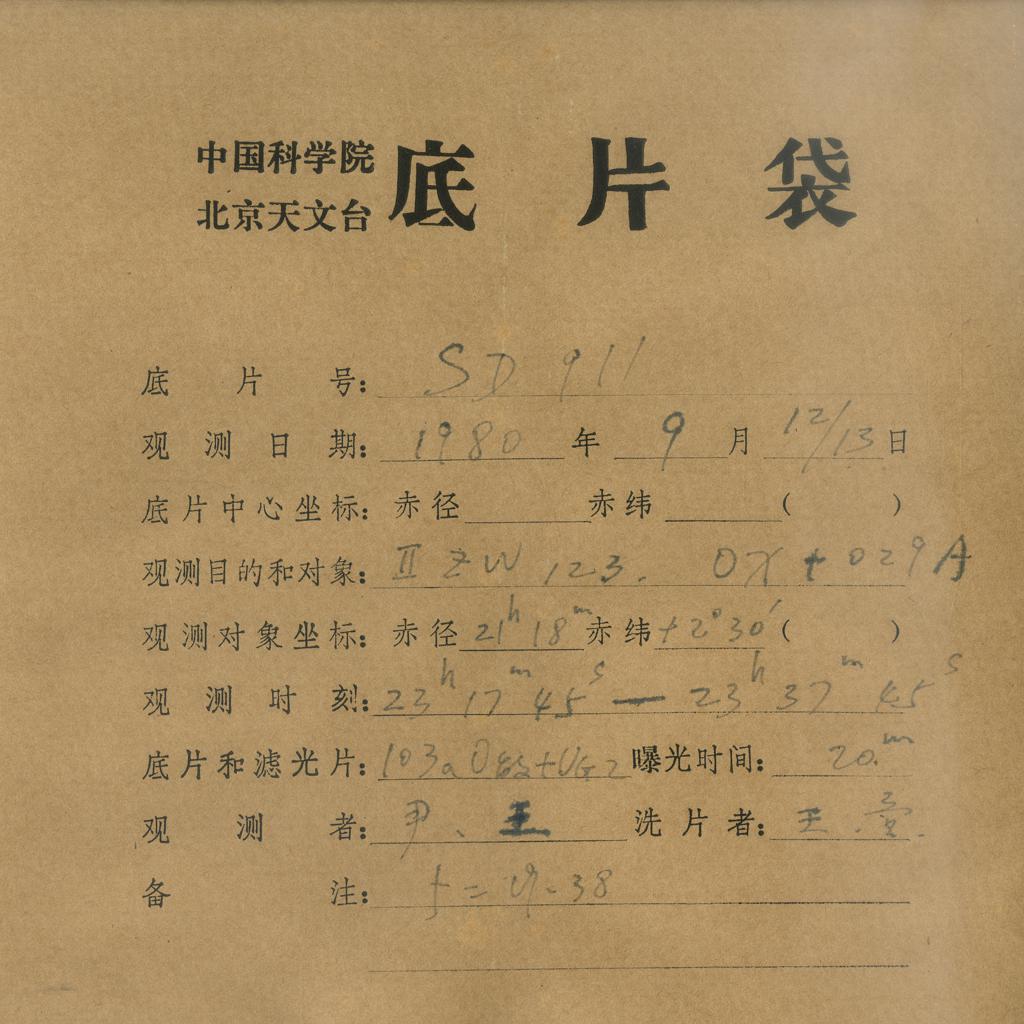 中国科学院
北京天文台
底片袋
底片号: SD 911
观测日期: 1980 年 9 月 12/13 日
底片中心坐标: 赤径 赤纬 ( )
观测目的和对象: II ZW 123. OX + 029 A
观测对象坐标: 赤径 21h 18m 赤纬 +2°30′ ( )
观测时刻: 23h 17m 45s — 23h 37m 45s
底片和滤光片: 103a O敏+UG2 曝光时间: 20m
观测者: 尹、王 洗片者: 王.
备注: f = 38